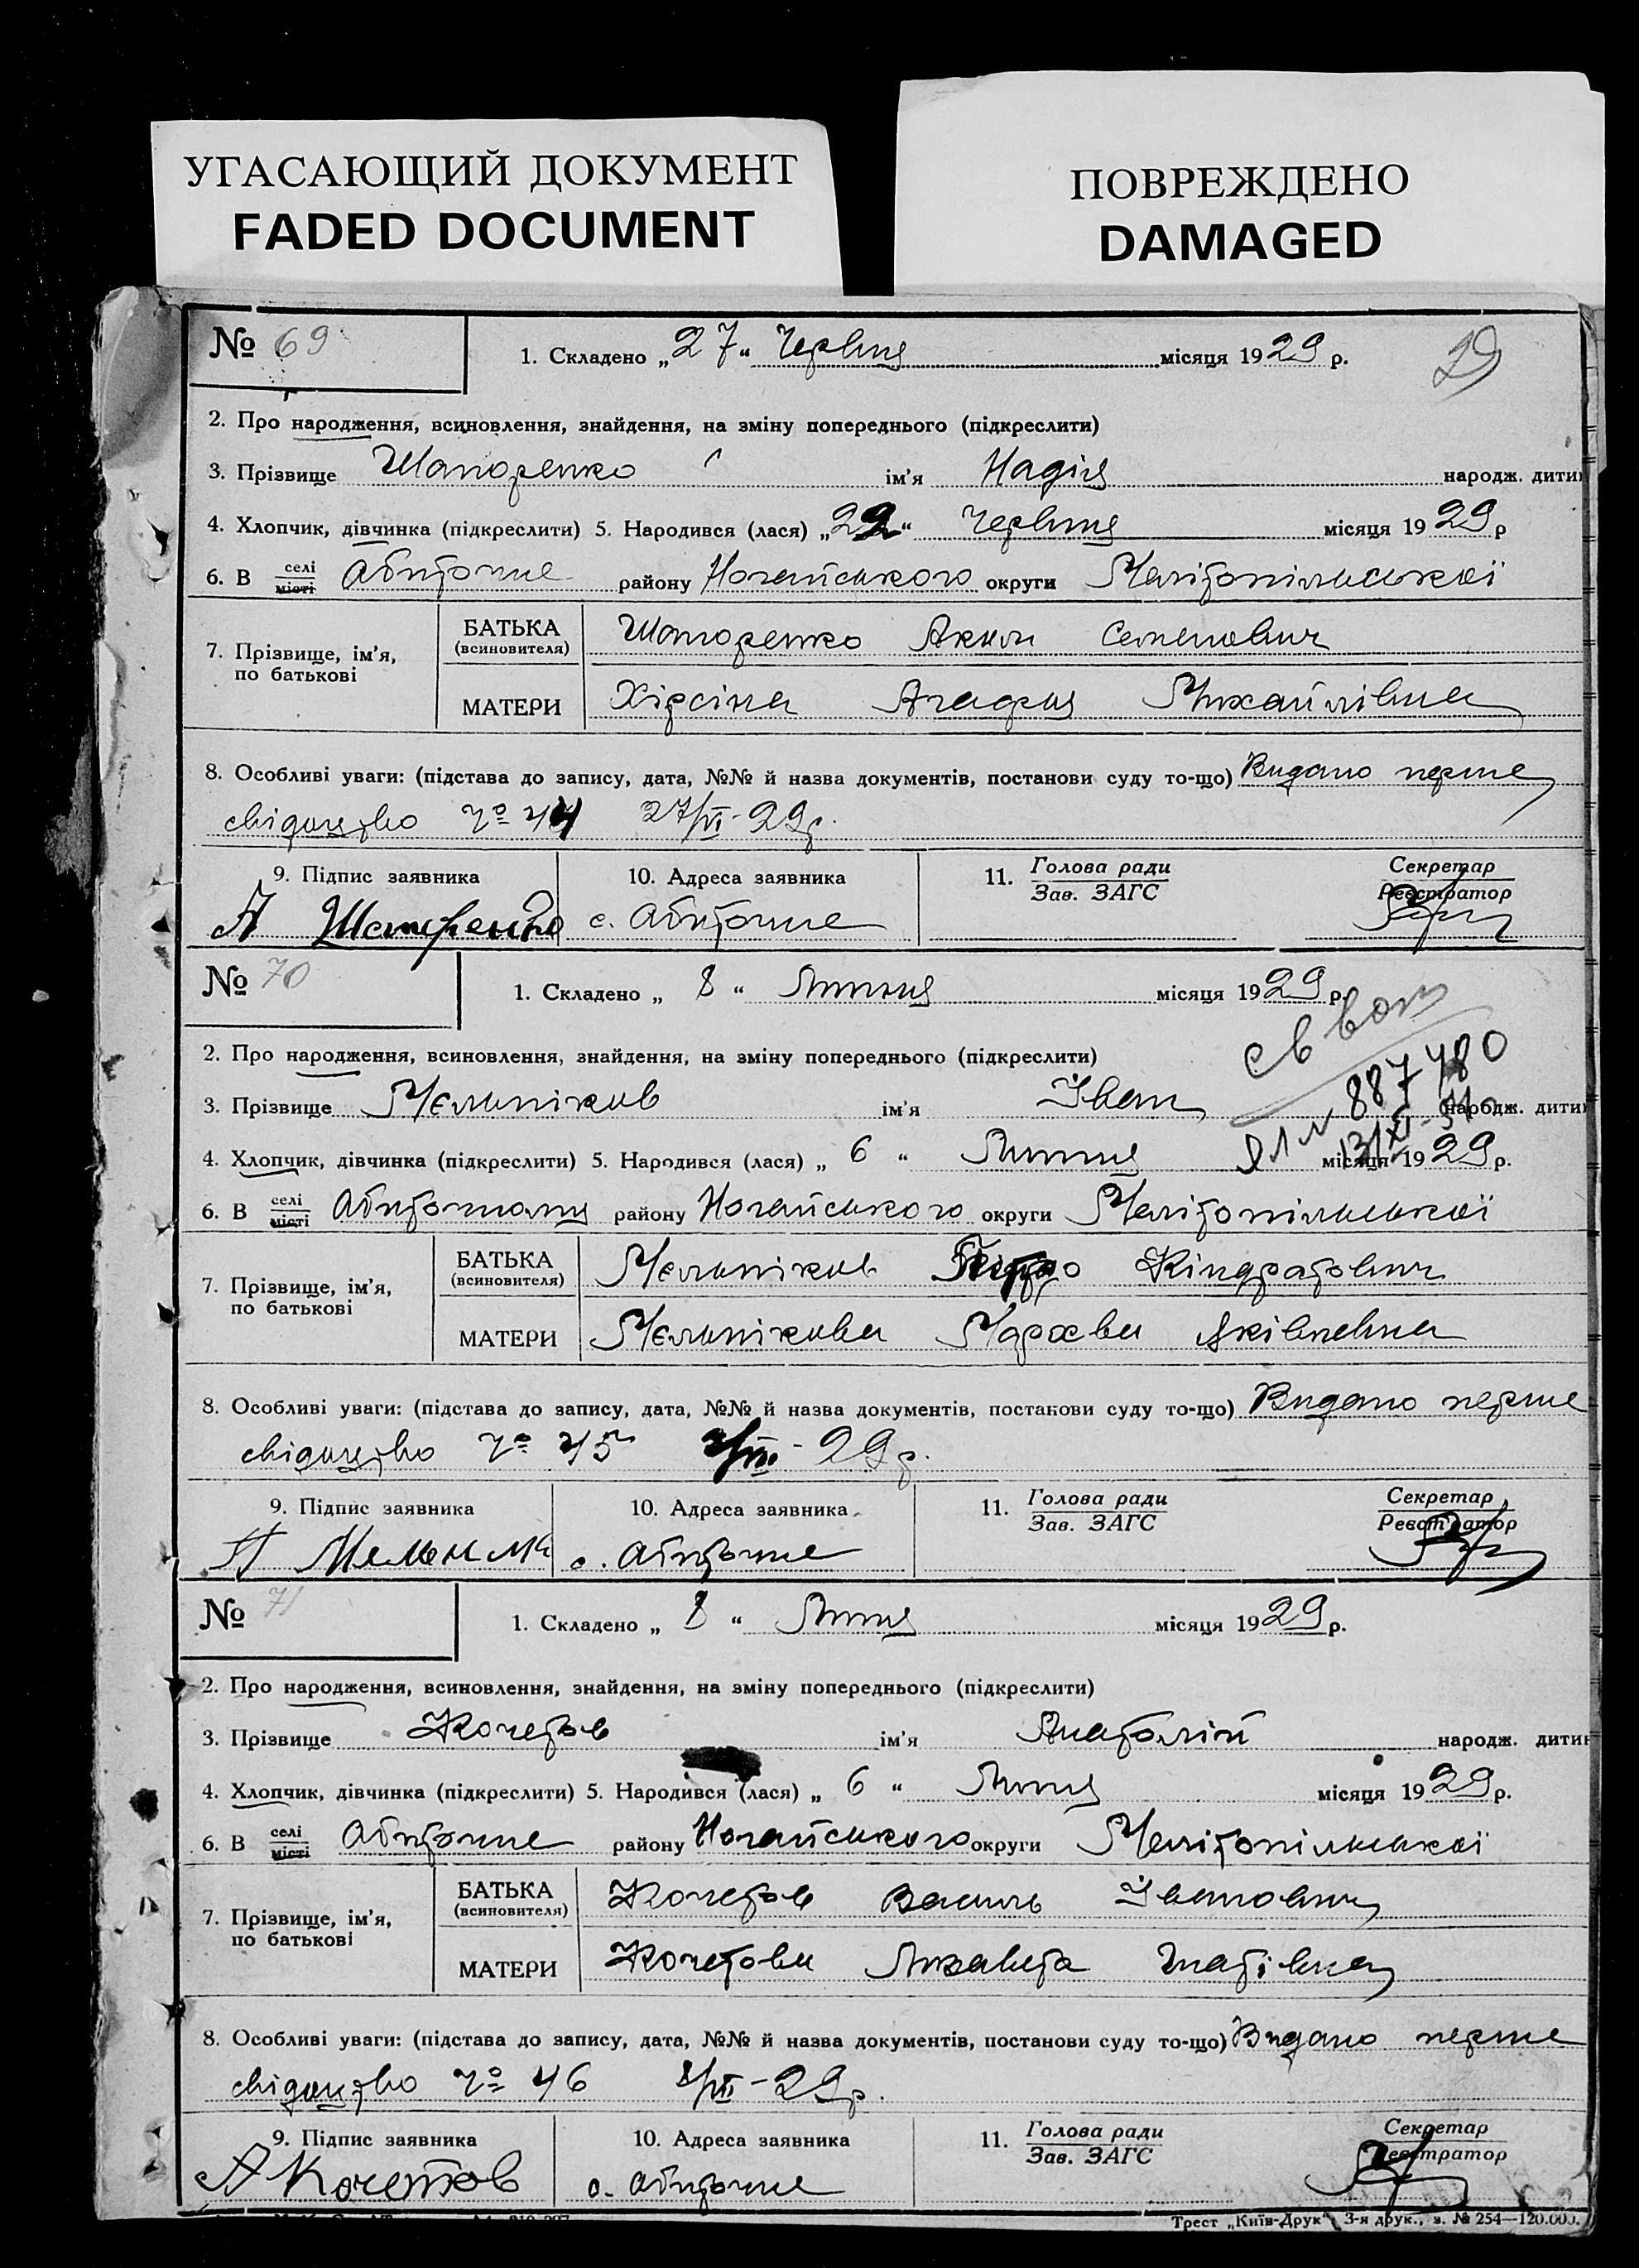 УГАСАЮЩИЙ ДОКУМЕНТ
FADED DOCUMENT
ПОВРЕЖДЕНО
DAMAGED
№ 69 1. Складено „27“ Червня місяця 1929 р. 29
2. Про народження, всиновлення, знайдення, на зміну попереднього (підкреслити)
3. Прізвище Шапоренко ім'я Надія народж. дити
4. Хлопчик, дівчинка (підкреслити) 5. Народився (лася) „22“ Червня місяця 1929 р
6. В селі місті Абиточне району Ногайського округи Мелітопільської
7. Прізвище, ім'я, по батькові
БАТЬКА (всиновителя) Шапоренко Аким Семенович
МАТЕРИ Хірсіна Агафия Михайлівна
8. Особливі уваги: (підстава до запису, дата, №№ й назва документів, постанови суду то-що) Видано перше
свідоцтво № 44 27/VI-29р.
9. Підпис заявника 10. Адреса заявника 11. Голова ради Зав. ЗАГС Секретар Реєстратор
А Шапоренко с. Абиточне
№ 70 1. Складено „ 8 “ Липня місяця 1929 р.
2. Про народження, всиновлення, знайдення, на зміну попереднього (підкреслити)
3. Прізвище Мельніков ім'я Іван народж. дити
887780
4. Хлопчик, дівчинка (підкреслити) 5. Народився (лася) „ 6 “ Липня місяця 1929 р.
6. В селі місті Абиточному району Ногайського округи Мелітопільської
7. Прізвище, ім'я, по батькові
БАТЬКА (всиновителя) Мельніков Петро Кіндратович
МАТЕРИ Мельнікова Марфа Яківлевна
8. Особливі уваги: (підстава до запису, дата, №№ й назва документів, постанови суду то-що) Видано перше
свідоцтво № 45 29 р.
9. Підпис заявника 10. Адреса заявника 11. Голова ради Зав. ЗАГС Секретар Реєстратор
с. Абиточне
№ 71 1. Складено „ 8 “ Липня місяця 1929 р.
2. Про народження, всиновлення, знайдення, на зміну попереднього (підкреслити)
3. Прізвище Кочетов ім'я Анатолій народж. дити
4. Хлопчик, дівчинка (підкреслити) 5. Народився (лася) „ 6 “ Липня місяця 1929 р.
6. В селі місті Абиточне району Ногайського округи Мелітопільської
7. Прізвище, ім'я, по батькові
БАТЬКА (всиновителя) Кочетов Василь Іванович
МАТЕРИ Кочетова Лизавета Гнатівна
8. Особливі уваги: (підстава до запису, дата, №№ й назва документів, постанови суду то-що) Видано перше
свідоцтво № 46 8/VII-29р.
9. Підпис заявника 10. Адреса заявника 11. Голова ради Зав. ЗАГС Секретар Реєстратор
Кочетов с. Абиточне
Трест „Київ-Друк“, 3-я друк., з. № 254—120.000.